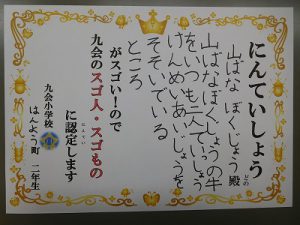 にんていしょう
山ばな ぼくしょう殿
どの
山ばなぼくしょうの牛
をいつも一人でいっしょう
けんめいあいじょうを
そそいでいる
ところ
がスゴい!ので
九会のスゴ人・スゴもの
に認定します
にんてい
九会小学校
はんよう町 二年生